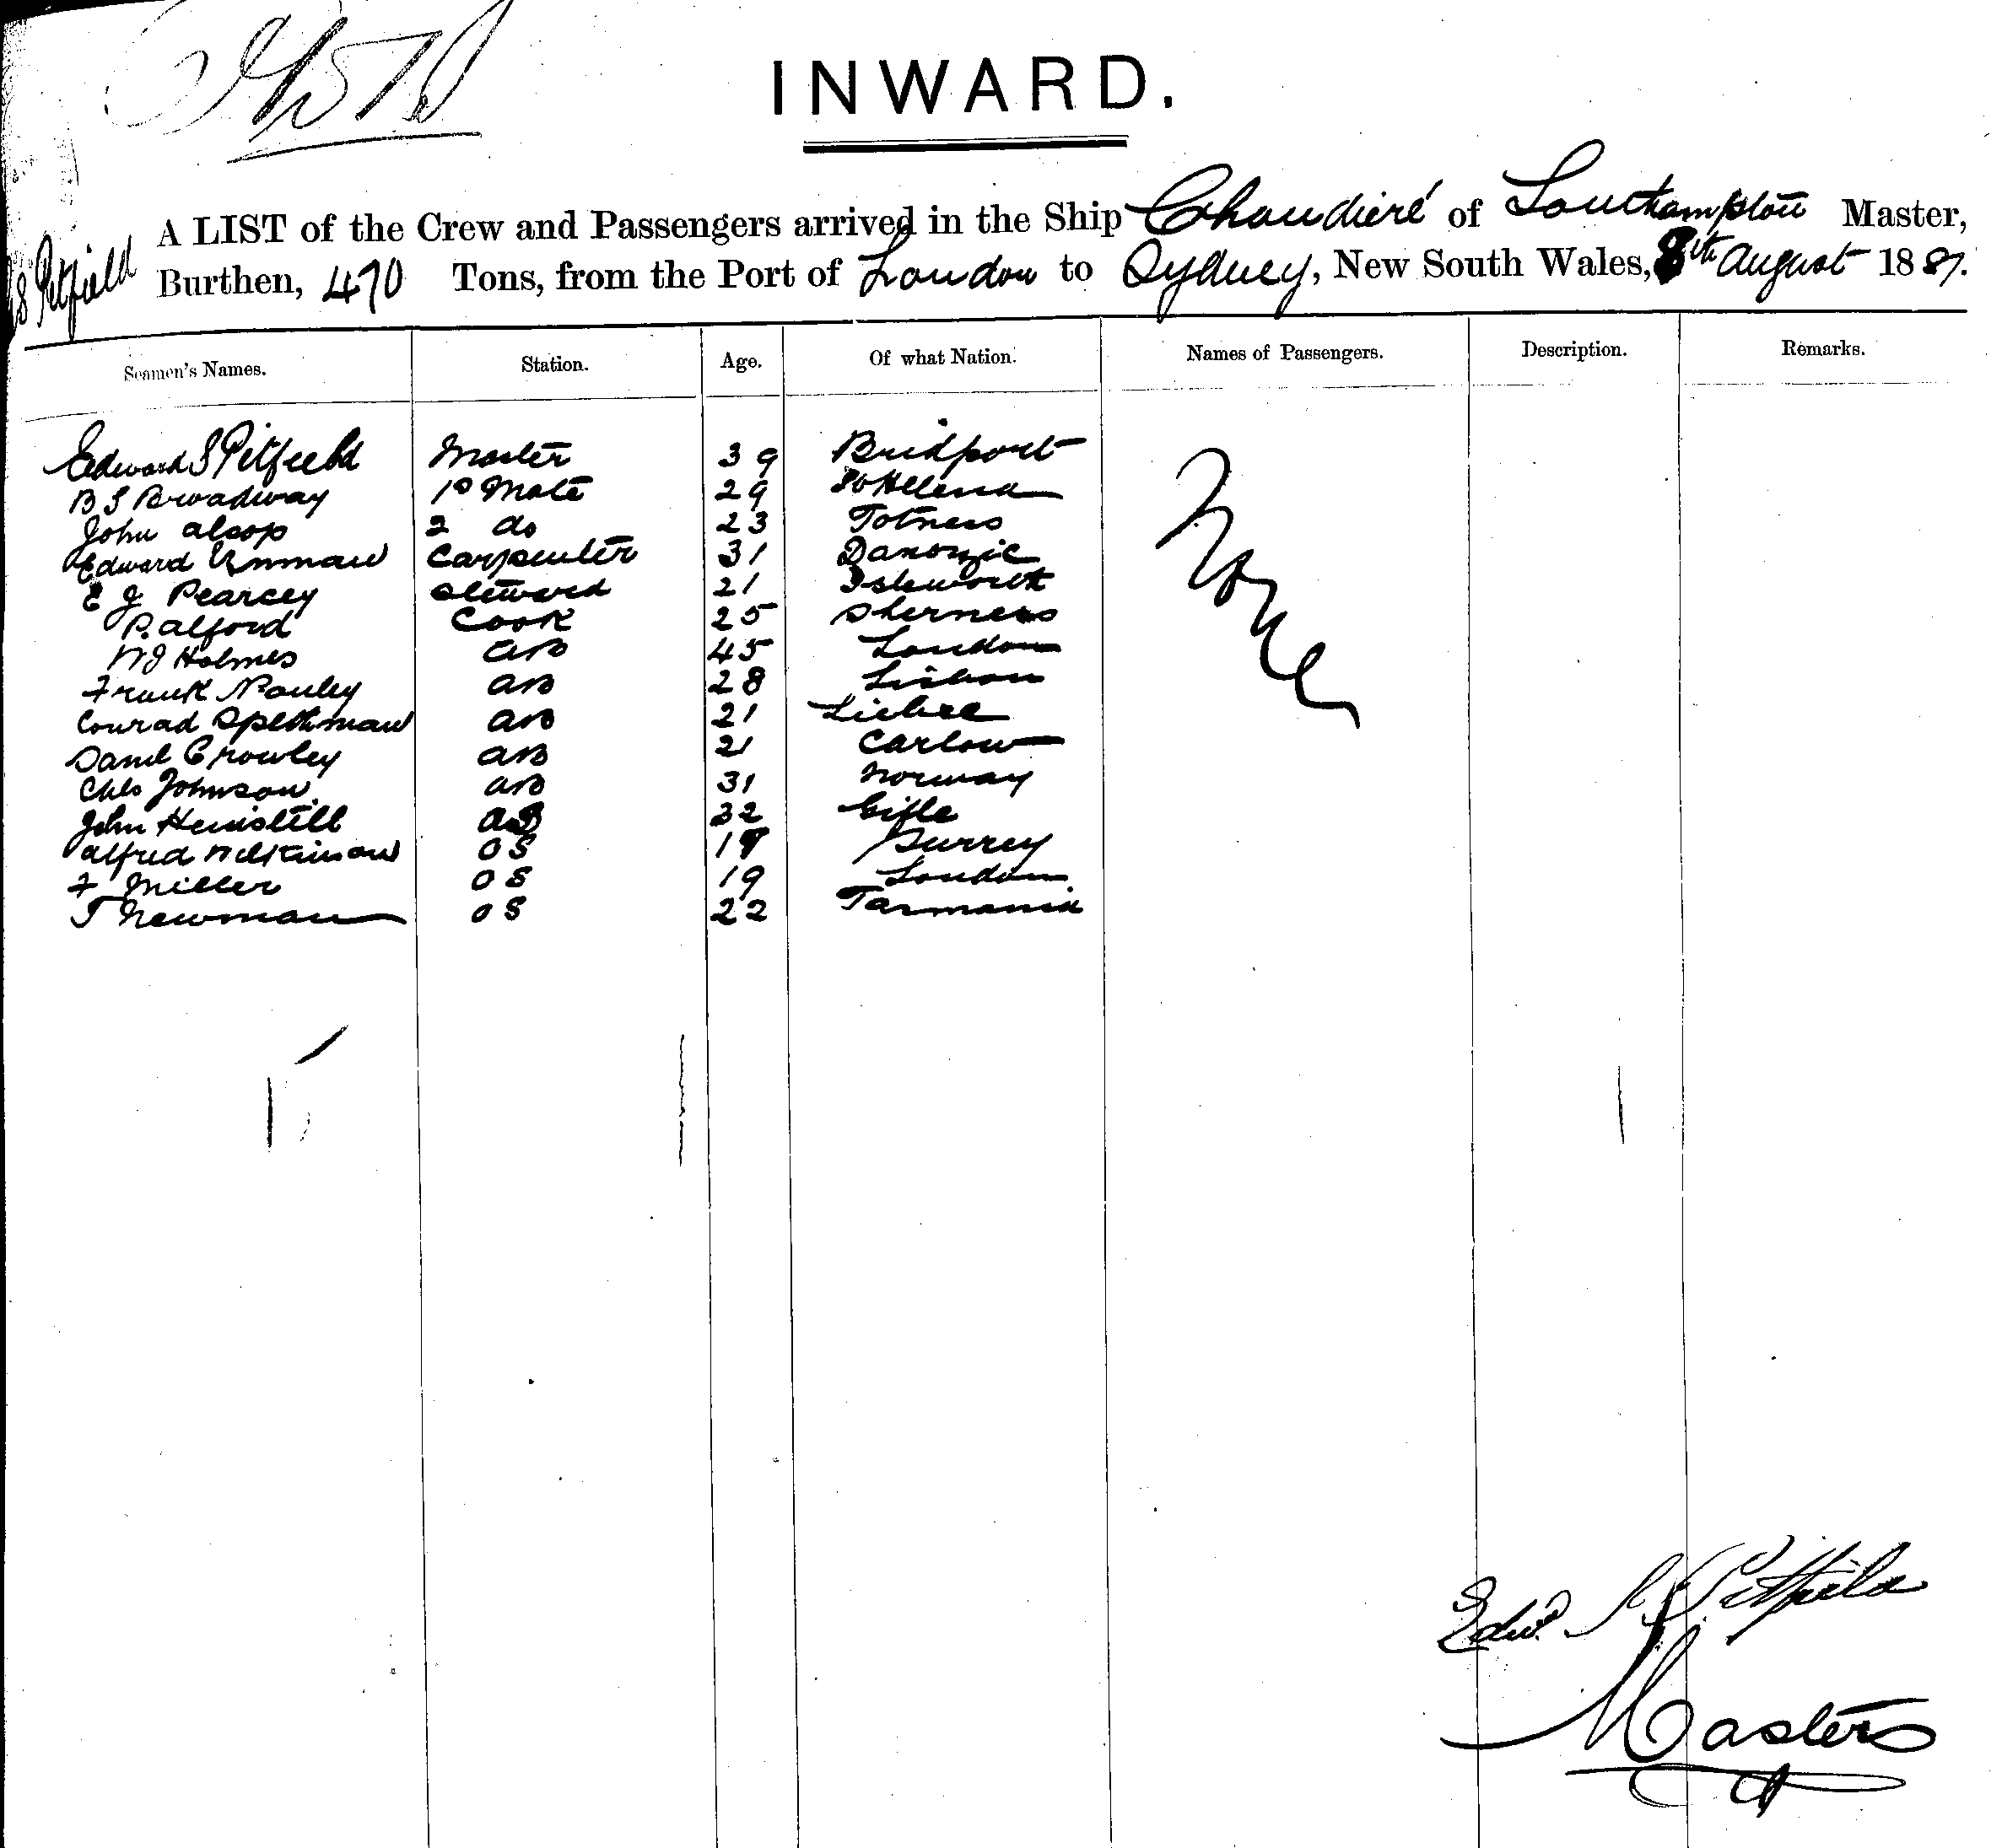 INWARD.
A LIST of the Crew and Passengers arrived in the Ship Chaudieré of Southampton Master,
S Pitfield Burthen, 470 Tons, from the Port of London to Sydney, New South Wales, 8th August 1887.
Seamen's Names. Station. Age. Of what Nation. Names of Passengers. Description. Remarks.
Edward S Pitfield Master 39 Bridport None
B S Broadway 1o Mate 29 St Helena
John Alsop 2 do 23 Totness
Edward Carpenter 31 Danszic
E J Pearcey Steward 21 Isleworth
P. Alford Cook 25 Sherness
W J Holmes AB 45 London
Frank AB 28 Lisbon
Conrad Spethman AB 21
Danl Crowley AB 21 Carlow
Chls Johnson AB 31 Norway
John AB 32 Gifle
Alfred Wilkinson OS 19 Surrey
F Miller OS 19 London
T Newman OS 22 Tasmania
Edwd S Pitfield
Master